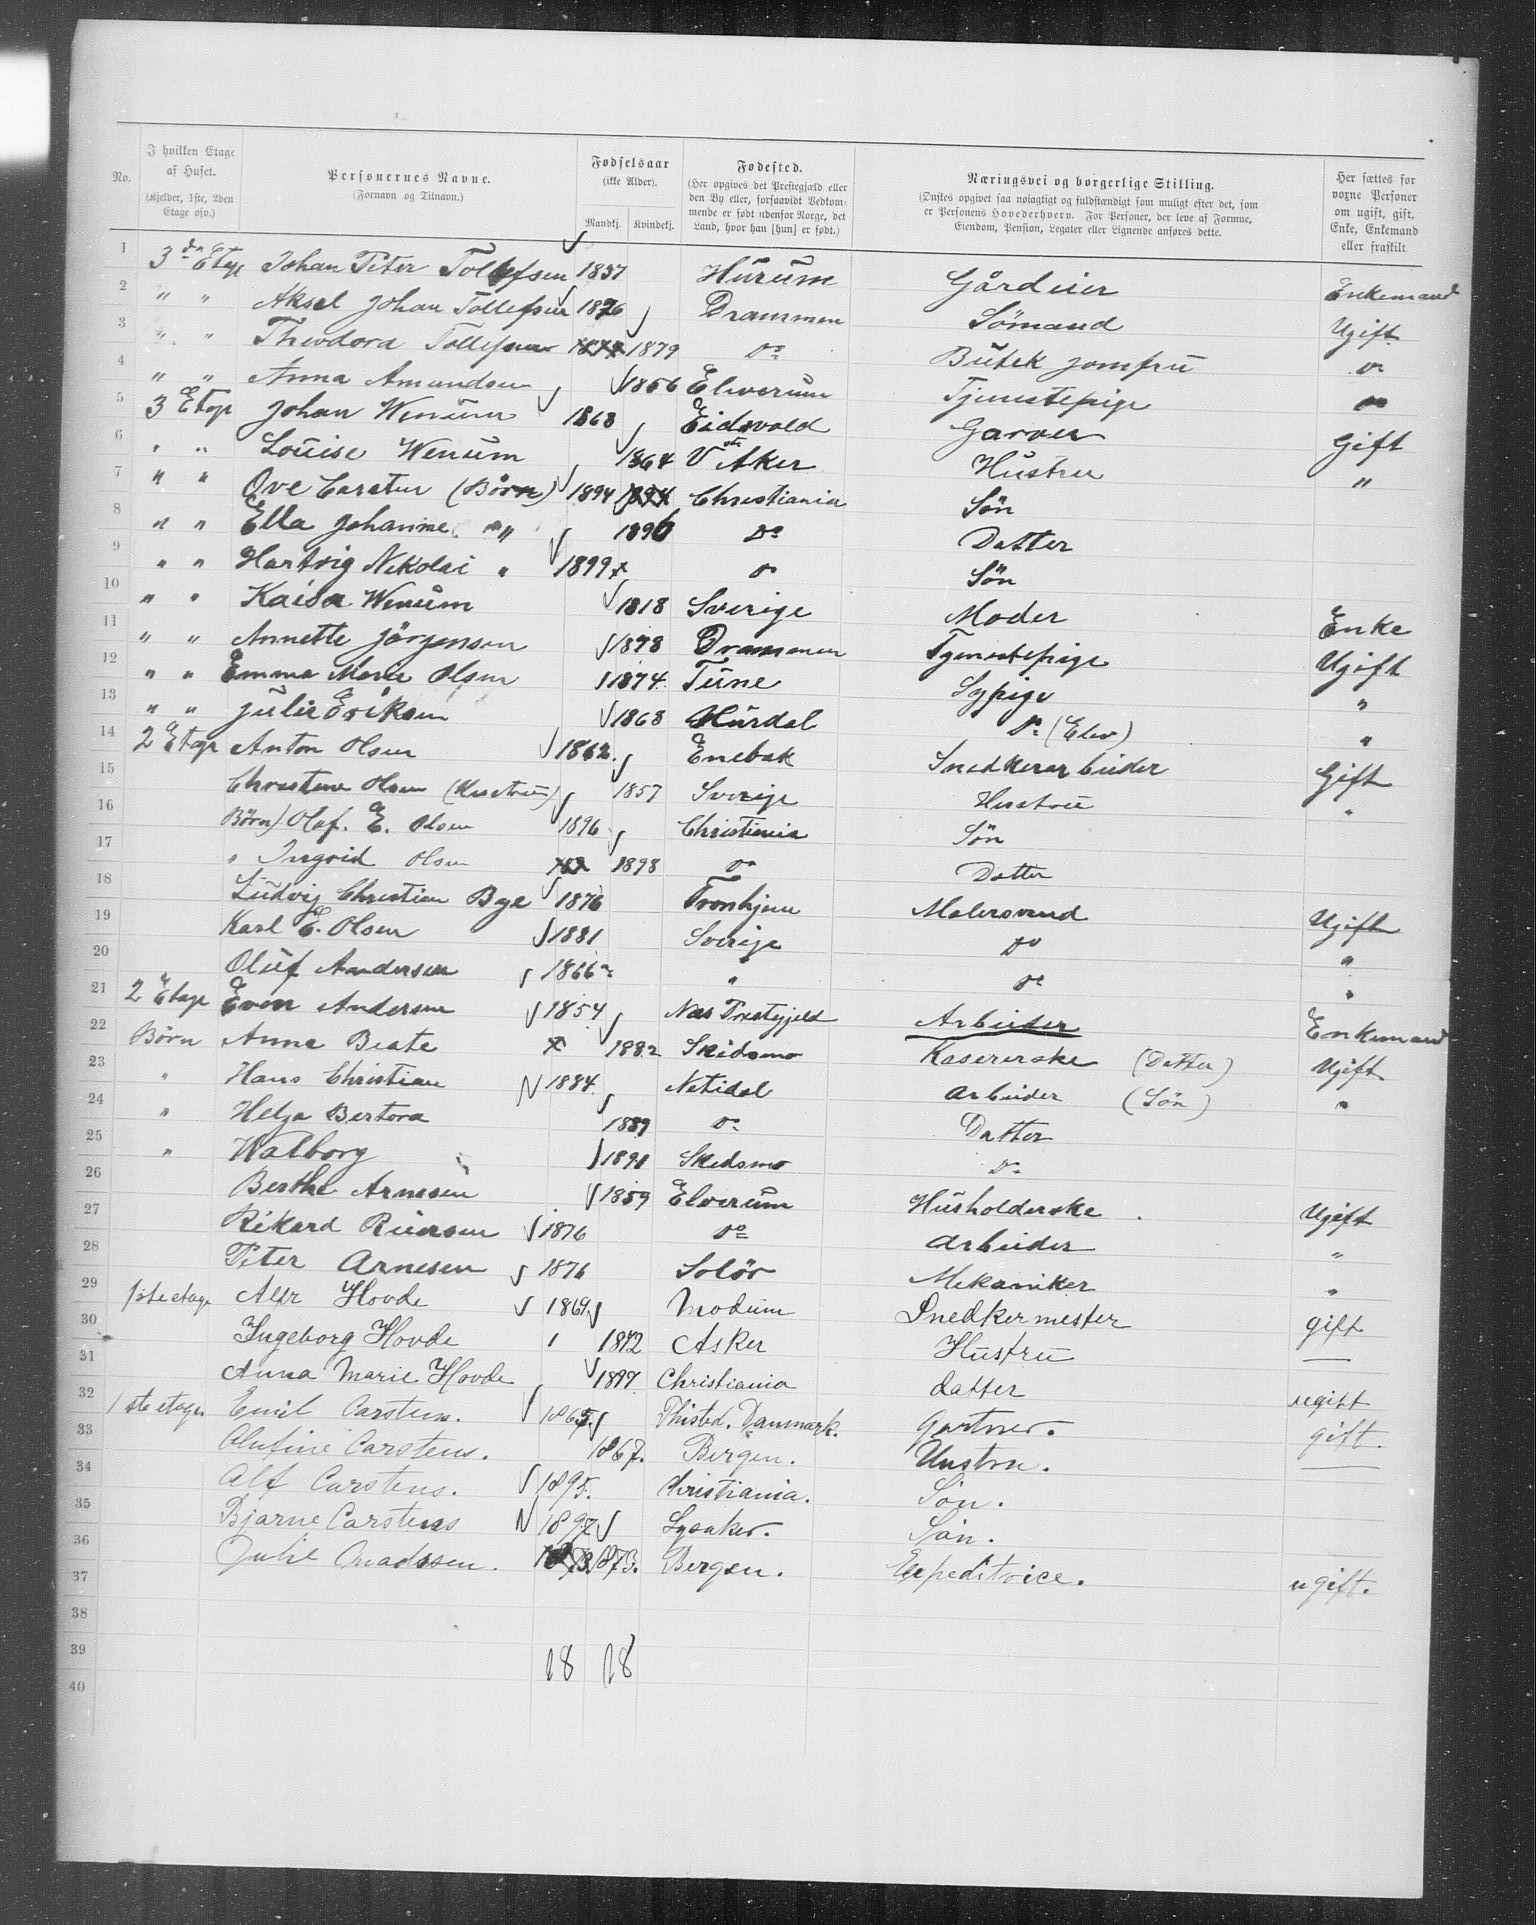 No. I hvilken Etage af Huset. (Kjelder, 1ste, 2den Etage osv.) Personernes Navne. (Fornavn og Tilnavn.) Fødselsaar (ikke Alder). Mandkj. Kvindekj. Fødested. (Her opgives det Prestegjæld eller den By eller, forsaavidt Vedkommende er født udenfor Norge, det Land, hvor han [hun] er født.) Næringsvei og borgerlige Stilling. (Ønskes opgivet saa nøiagtigt og fuldstændigt som muligt efter det, som er Personens Hovederhverv. For Personer, der leve af Formue, Eiendom, Pension, Legater eller Lignende anføres dette. Her sættes for voxne Personer om ugift, gift, Enke, Enkemand eller fraskilt.
1 3dn Etage Johan Peter Tollefsen 1837 Hurum Gårdeier Enkemand
2 " " Aksel Johan Tollefsen 1876 Drammen Sömand Ugift
3 " " Theodora Tollefsen 1879 do Butek jomfru do
4 " " Anna Amundsen 1856 Elverum Tjenstepige do
5 3 Etage Johan Wenum 1868 Eidsvold Garver Gift
6 " " Louise Wenum 1864 V Aker Hustru "
7 " " Ove Carsten (Börn) 1894 Christiania Sön
8 " " Ella Johanne " 1896 Do Datter
9 " " Hartvig Nikolai " 1899 do Sön
10 " " Kaisa Wenum 1818 Sverige Moder Enke
11 " " Annette Jörgensen 1878 Drammen Tjenestepige Ugift
12 " " Emma Marie Olsen 1874 Tune Sypige "
13 " " Julie Eriksen 1868 Hurdal Do (Elev) "
14 2 Etage Anton Olsen 1862 Enebak Snedkerarbeider Gift
15 Christine Olsen (Hustru) 1857 Sverige Hustru "
16 Börn) Olaf. E. Olsen 1896 Christiania Sön
17 " Ingvid Olsen 1898 do Datter
18 Ludvig Christian Bye 1876 Tronhjem Malersvend Ugift
19 Karl E. Olsen 1881 Sverige do "
20 Oluf Andersen 1866 " do "
21 2 Etage Even Andersen 1854 Nes Prestegjeld Arbeider Enkemand
22 Börn Anna Beate 1882 Skidsmo Kasererske (Datter) Ugift
23 " Hans Christian 1884 Netidal Arbeider (Sön) "
24 " Helga Bertora 1889 do Datter
25 " Walborg 1891 Skedsmo do
26 Berthe Arnesen 1859 Elverum Husholderske Ugift
27 Rikard 1876 do Arbeider "
28 Peter Arnesen 1876 Solör Mekaniker "
29 1ste etage Alfr Hovde 1869 Modum Snedkermester gift
30 Ingeborg Hovde 1872 Asker Hustru —
31 Anna Marie Hovde 1897 Christiania datter ugift
32 1ste etage Emil Carstens. 1865. Thisted. Danmark. Gartner. gift.
33 Olufine Carstens. 1867. Bergen. Hustru. —
34 Alf Carstens. 1895. Kristiania. Sön.
35 Bjarne Carstens 1897 Lysaker. Sön.
36 Julie Madssen. 1873. Bergen. Expeditrice. ugift.
37
38
39 18 18
40